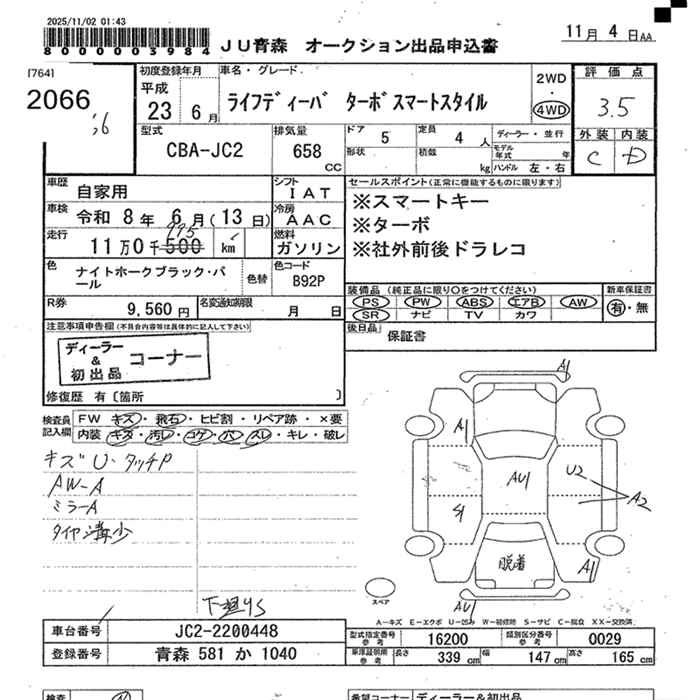 2025/11/02 01:43
800003984 JU青森 オークション出品申込書 11月 4日AA
[764]
2066
初度登録年月 車名・グレード
平成 23年 6月 ライフディーバ ターボスマートスタイル
2WD ・ 4WD
評価点 3.5
外装 内装
C D
型式 CBA-JC2
排気量 658 CC
ドア 5 形状
定員 4人 積載 kg
ディーラー・並行
モデル年式 年
ハンドル 左・右
車歴 自家用
シフト IAT
車検 令和 8年 6月(13日)
冷房 AAC
走行 11万0千500 995 km
燃料 ガソリン
色 ナイトホークブラック・パール
色替
色コード B92P
R券 9,560円
名変通知期限 月 日
セールスポイント(正常に機能するものに限ります)
※スマートキー
※ターボ
※社外前後ドラレコ
装備品(純正品に限り○をつけてください)
PS PW ABS エアB AW
SR ナビ TV カワ
新車保証書
有・無
後日品 保証書
注意事項申告欄(不具合内容等は具体的に記入して下さい)
ディーラー & 初出品 コーナー
修復歴 有〔箇所 〕
検査員記入欄
FW キズ・飛石・ヒビ割・リペア跡・×要
内装 キズ・汚レ・コゲ・穴・スレ・キレ・破レ
キズU・タッチP
AW-A
ミラーA
タイヤ溝少
下廻りS
A1
A1
AU1
U2
A2
S1
脱着
A1
AU1
スペア
A-キズ E-エクボ U-凹み W-補修跡 S-サビ C-腐食 XX-交換済
車台番号 JC2-2200448
登録番号 青森 581 か 1040
型式指定番号 参考 16200
類別区分番号 参考 0029
車庫証明用 参考 長さ 339 cm 幅 147 cm 高さ 165 cm
検査
希望コーナー ディーラー&初出品